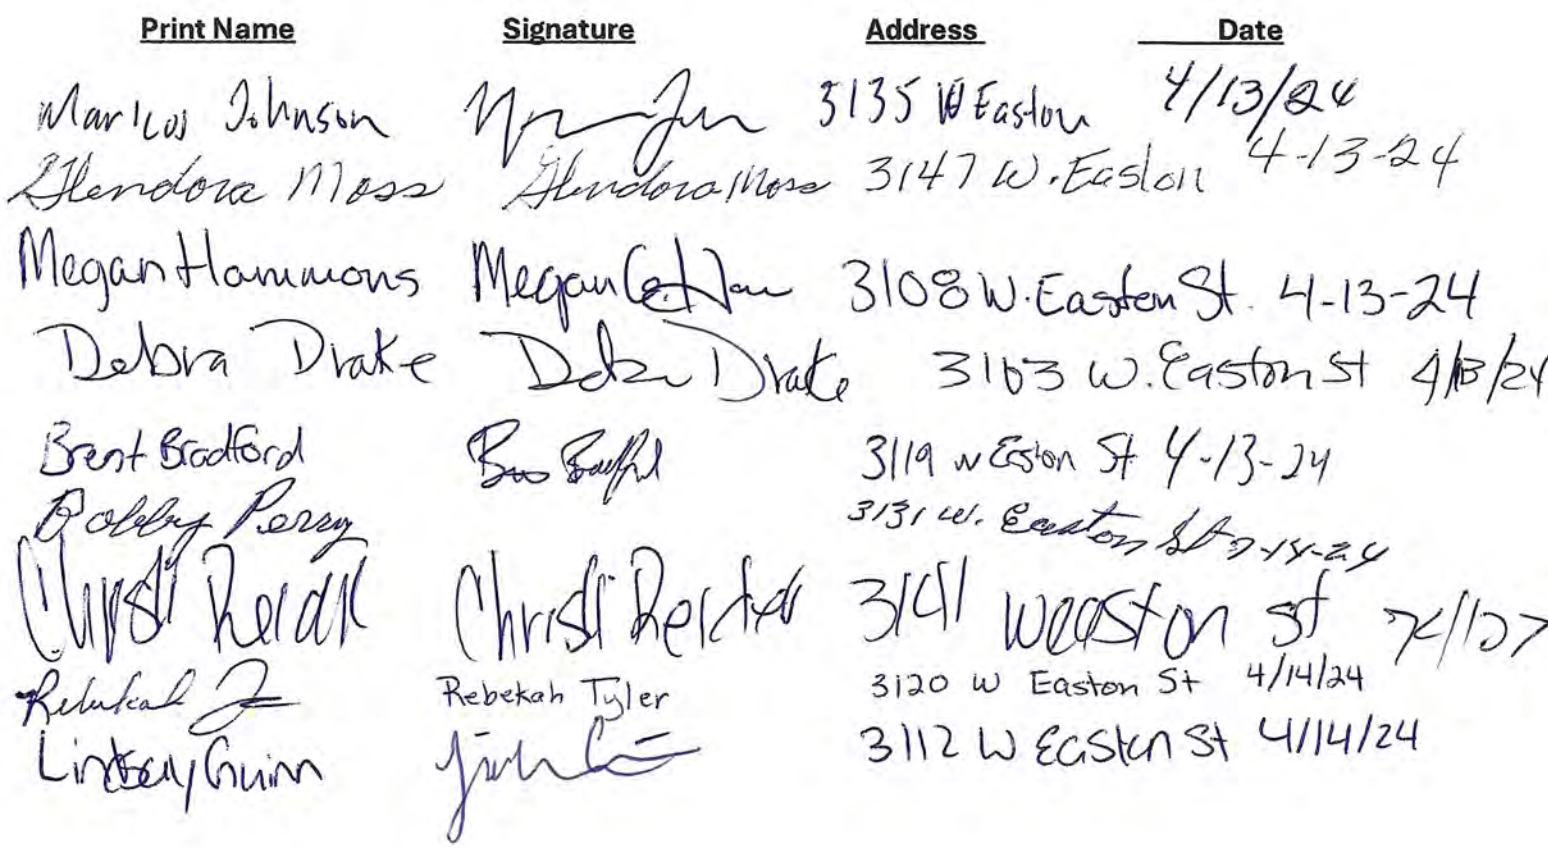 Print Name Signature Address Date
Marlius Johnson 3135 W Easton 4/13/24
Glendora Moss Glendora Moss 3147 W. Easton 4-13-24
Megan Hammons Megan 3108 W. Easton St. 4-13-24
Debra Drake Debra Drake 3103 W. Easton St 4/13/24
Brent Bradford 3119 W Easton St 4-13-24
Bobby Perry 3131 W. Easton St
Christi Christi 3141 W easton st
Rebekah Rebekah Tyler 3120 W Easton St 4/14/24
Lindsey Guinn 3112 W Easton St 4/14/24